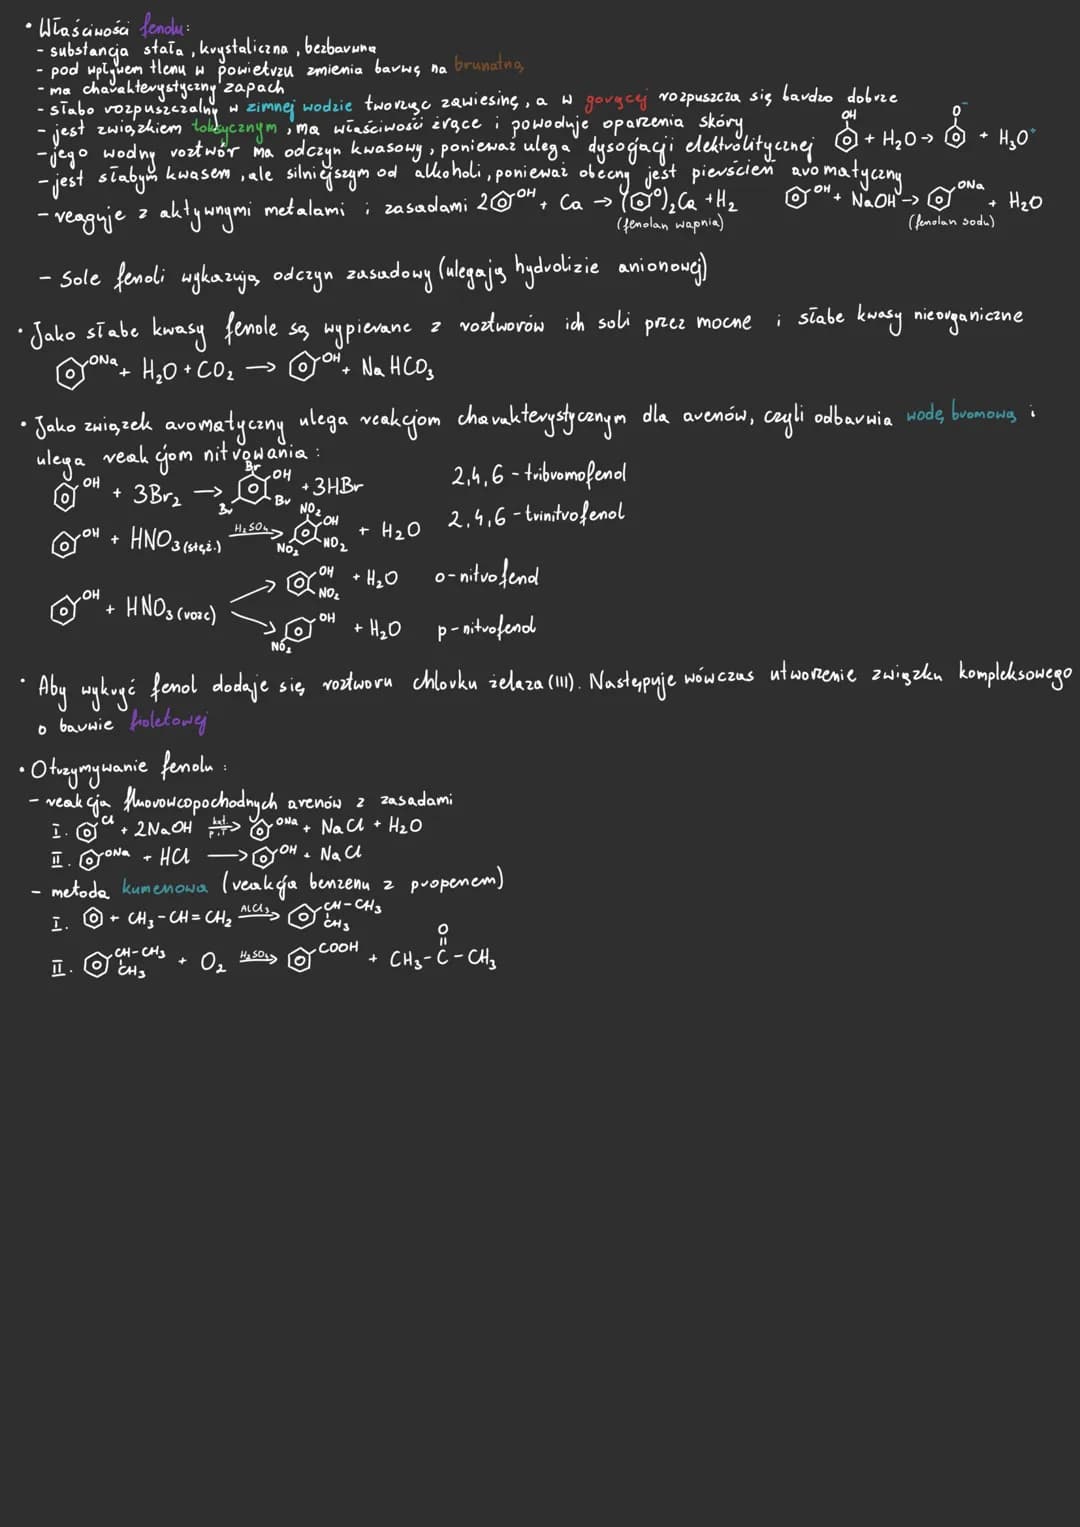 • Właściwości fenolu:
- substancja stała, krystaliczna, bezbarwna
- pod wpływem tlenu w powietrzu zmienia barwę na brunatną
- ma charakterystyczny zapach
- słabo rozpuszczalny w zimnej wodzie tworząc zawiesinę, a w gorącej rozpuszcza się bardzo dobrze
- jest związkiem toksycznym, ma właściwości żrące i powoduje oparzenia skóry
- jego wodny roztwór ma odczyn kwasowy, ponieważ ulega dysocjacji elektrolitycznej OH + H₂O → O⁻ + H₃O⁺
- jest słabym kwasem, ale silniejszym od alkoholi, ponieważ obecny jest pierścień aromatyczny
- reaguje z aktywnymi metalami i zasadami 2 OH + Ca → ( O)₂Ca + H₂ OH + NaOH → ONa + H₂O
(fenolan wapnia) (fenolan sodu)
- Sole fenoli wykazują odczyn zasadowy (ulegają hydrolizie anionowej)
• Jako słabe kwasy fenole są wypierane z roztworów ich soli przez mocne i słabe kwasy nieorganiczne
ONa + H₂O + CO₂ → OH + NaHCO₃
• Jako związek aromatyczny ulega reakcjom charakterystycznym dla arenów, czyli odbarwia wodę bromową i
ulega reakcjom nitrowania:
OH + 3Br₂ → Br OH Br Br + 3HBr 2,4,6 - tribromofenol
OH + HNO₃ (stęż.) H₂SO₄ → NO₂ OH NO₂ NO₂ + H₂O 2,4,6 - trinitrofenol
OH + HNO₃ (rozc) → OH NO₂ + H₂O o-nitrofenol
→ OH NO₂ + H₂O p-nitrofenol
• Aby wykryć fenol dodaje się roztworu chlorku żelaza (III). Następuje wówczas utworzenie związku kompleksowego
o barwie fioletowej
• Otrzymywanie fenolu:
- reakcja fluorowcopochodnych arenów z zasadami
I. Cl + 2NaOH kat. p,T → ONa + NaCl + H₂O
II. ONa + HCl → OH + NaCl
- metoda kumenowa (reakcja benzenu z propenem)
I. + CH₃-CH=CH₂ AlCl₃ → CH-CH₃ CH₃
II. CH-CH₃ CH₃ + O₂ H₂SO₄ → COOH + CH₃-C-CH₃ O